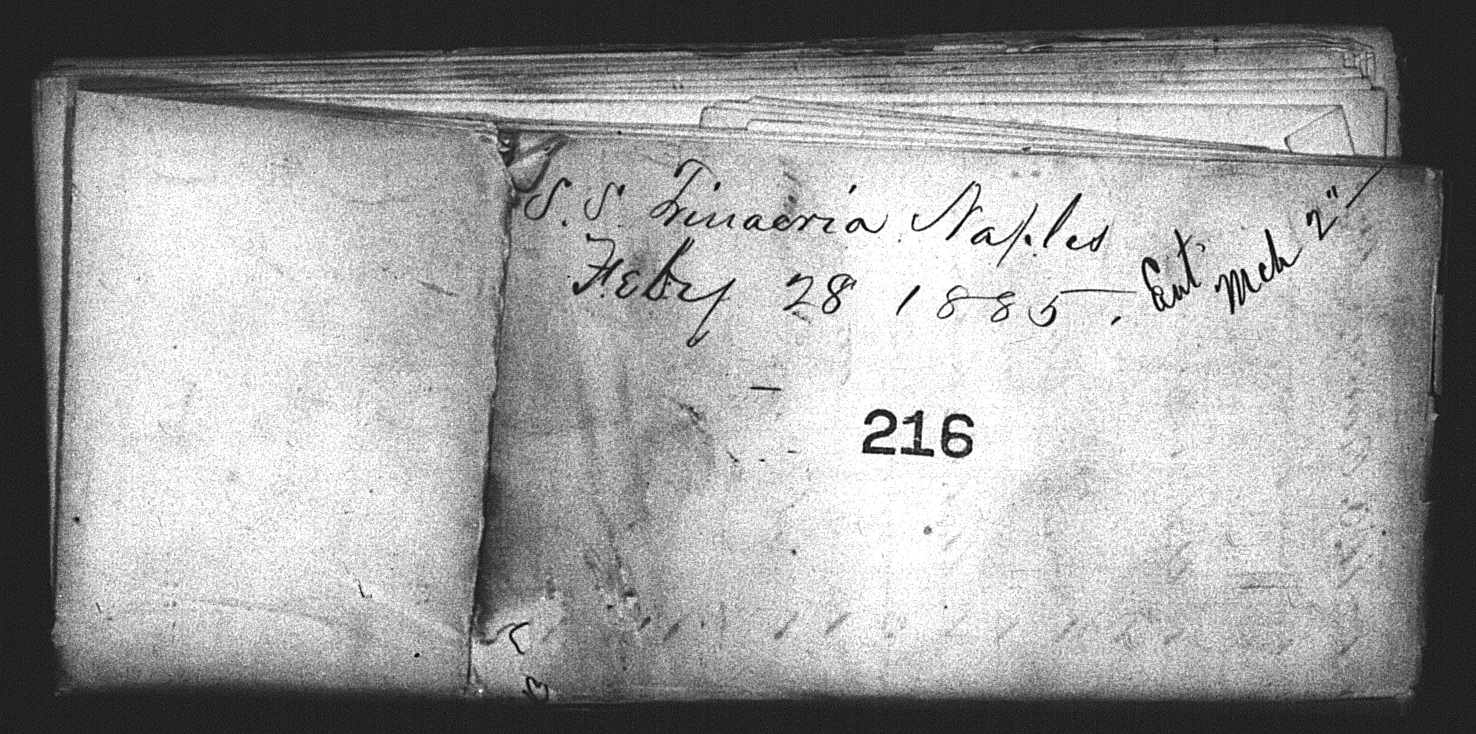 S. S. Trinacria Naples
Feby 28 1885. Ent Mch 2"
216